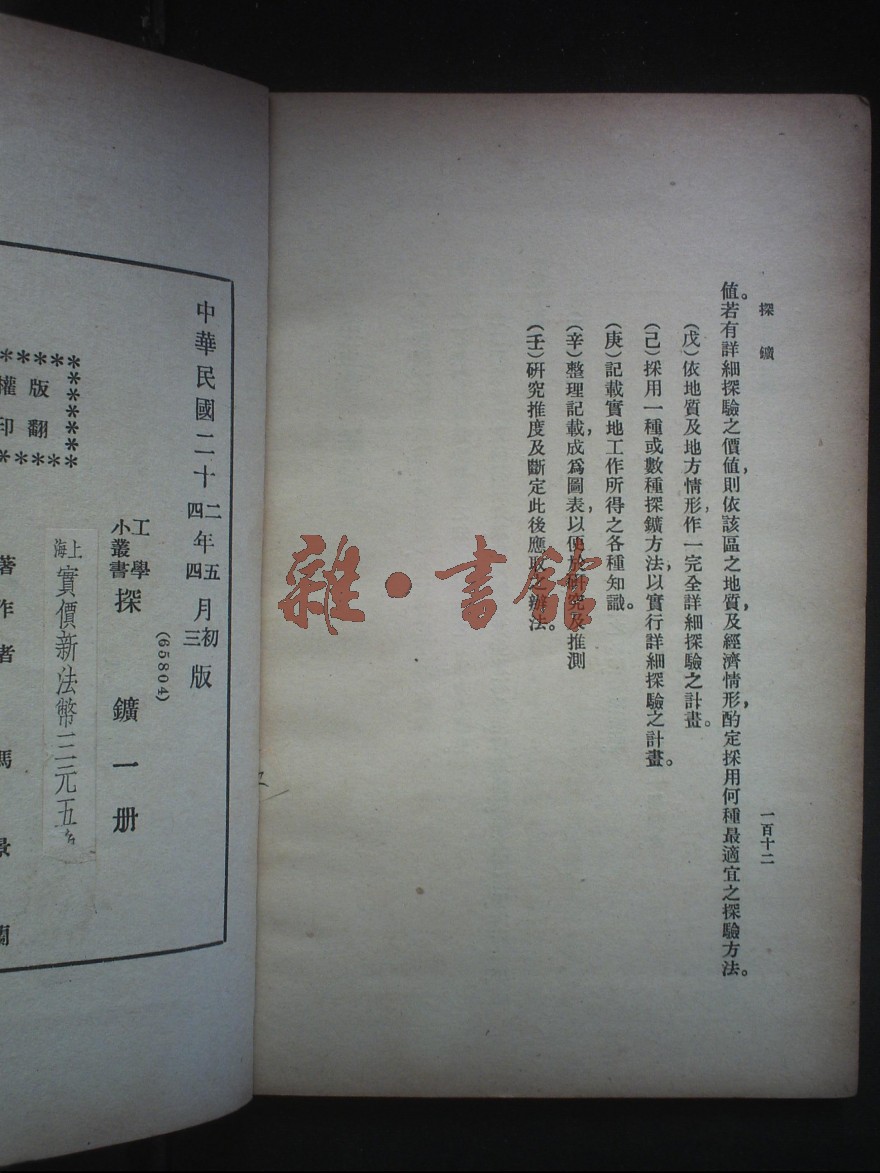 探鑛
一百十二
值。若有詳細探驗之價值，則依該區之地質及經濟情形，酌定採用何種最適宜之探驗方法。
(戊)依地質及地方情形，作一完全詳細探驗之計畫。
(己)採用一種或數種探鑛方法，以實行詳細探驗之計畫。
(庚)記載實地工作所得之各種知識。
(辛)整理記載，成爲圖表，以便於研究及推測
(壬)研究推度及斷定此後應取之辦法。
雜·書館
中華民國二十二四年五四月初三版
(65804)
工學小叢書
探鑛一册
上海實價新法幣三元五
版翻
權印
著作者 景